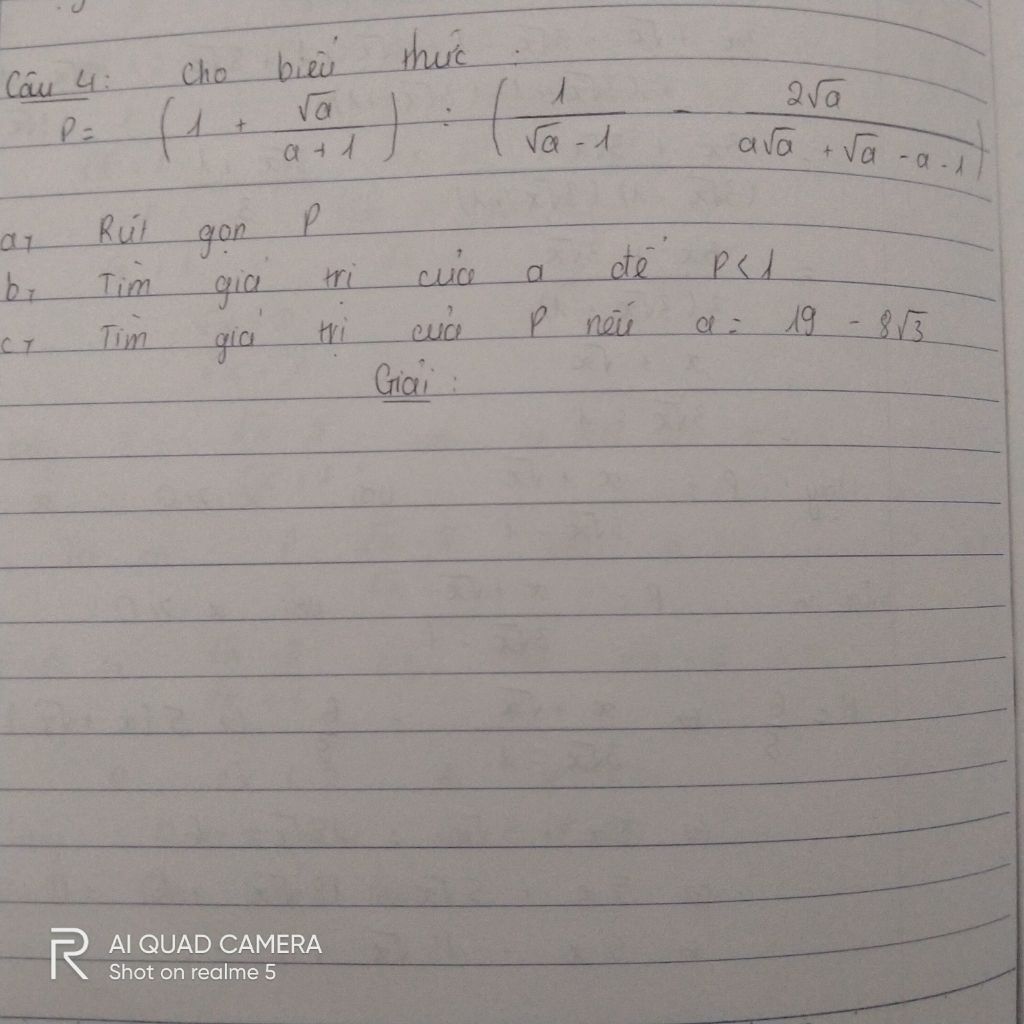 Câu 4: Cho biểu thức :
P = (1 + √a / a + 1) : (1 / √a - 1 - 2√a / a√a + √a - a - 1)
a, Rút gọn P
b, Tìm giá trị của a để P < 1
c, Tìm giá trị của P nếu a = 19 - 8√3
Giải :
AI QUAD CAMERA
Shot on realme 5